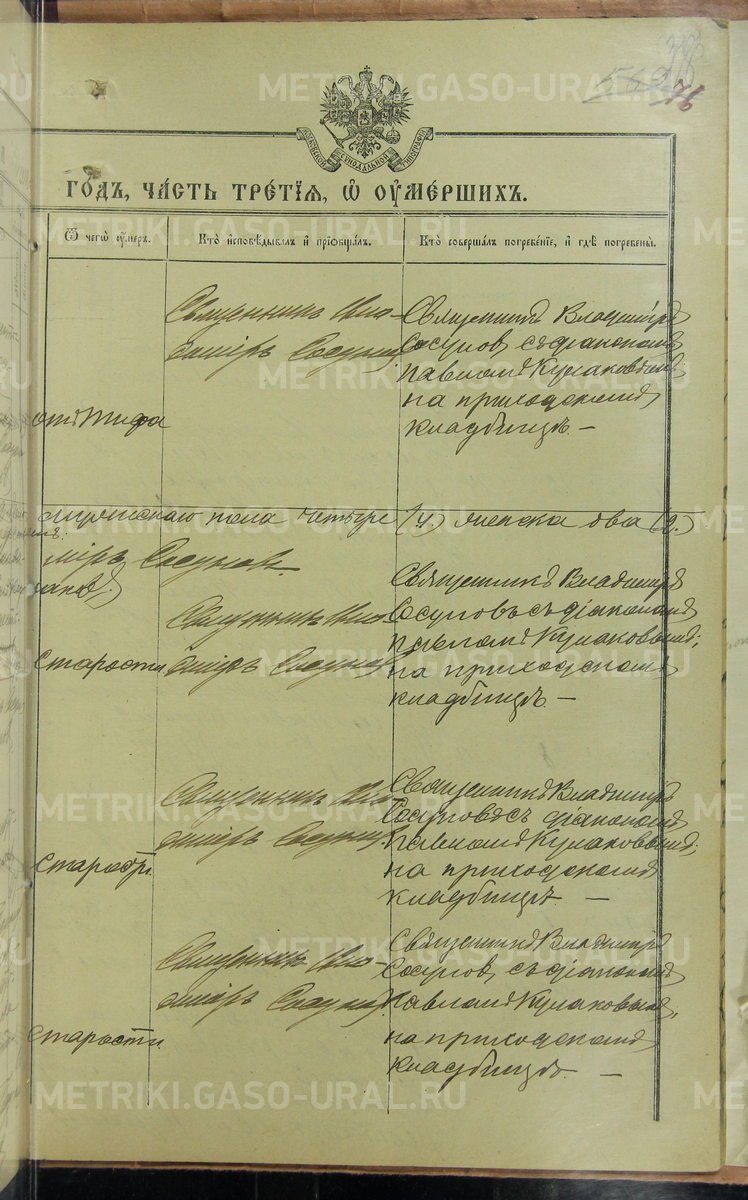 569
76
МОСКОВСКОЙ СѴНОДАЛЬНОЙ ТИПОГРАФІИ
ГОДЪ, ЧАСТЬ ТРЕТІЯ, Ѡ ОУМЕРШИХЪ.
Ѿ чегѡ оумеръ.
Кто исповѣдывалъ и прїобщалъ.
Кто совершалъ погребенїе, и гдѣ погребены.
отъ тифа
Священникъ Вла-
димiръ Сосунов
Священникъ Владимiръ
Сосунов, съ дiакономъ
Павломъ Кулаковымъ
на приходскомъ
кладбищѣ. —
мужского пола четыре (4.) женска два (2.)
мiръ Сосунов.
старости
Священникъ Вла-
димiръ Сосунов
Священникъ Владимiръ
Сосуновъ съ дiакономъ
Павломъ Кулаковымъ;
на приходскомъ
кладбищѣ. —
старости.
Священникъ Вла-
димiръ Сосунов
Священникъ Владимiръ
Сосуновъ съ дiакономъ
Павломъ Кулаковымъ;
на приходскомъ
кладбищѣ. —
старости.
Священникъ Вла-
димiръ Сосунов
Священникъ Владимiръ
Сосунов, съ дiакономъ
Павломъ Кулаковымъ,
на приходскомъ
кладбищѣ. —
METRIKI.GASO-URAL.RU